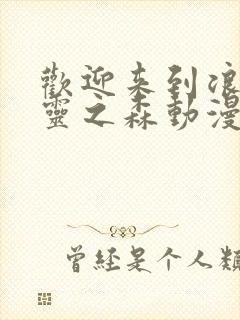 歡迎来到浪
靈之森動漫
曾经是个人類